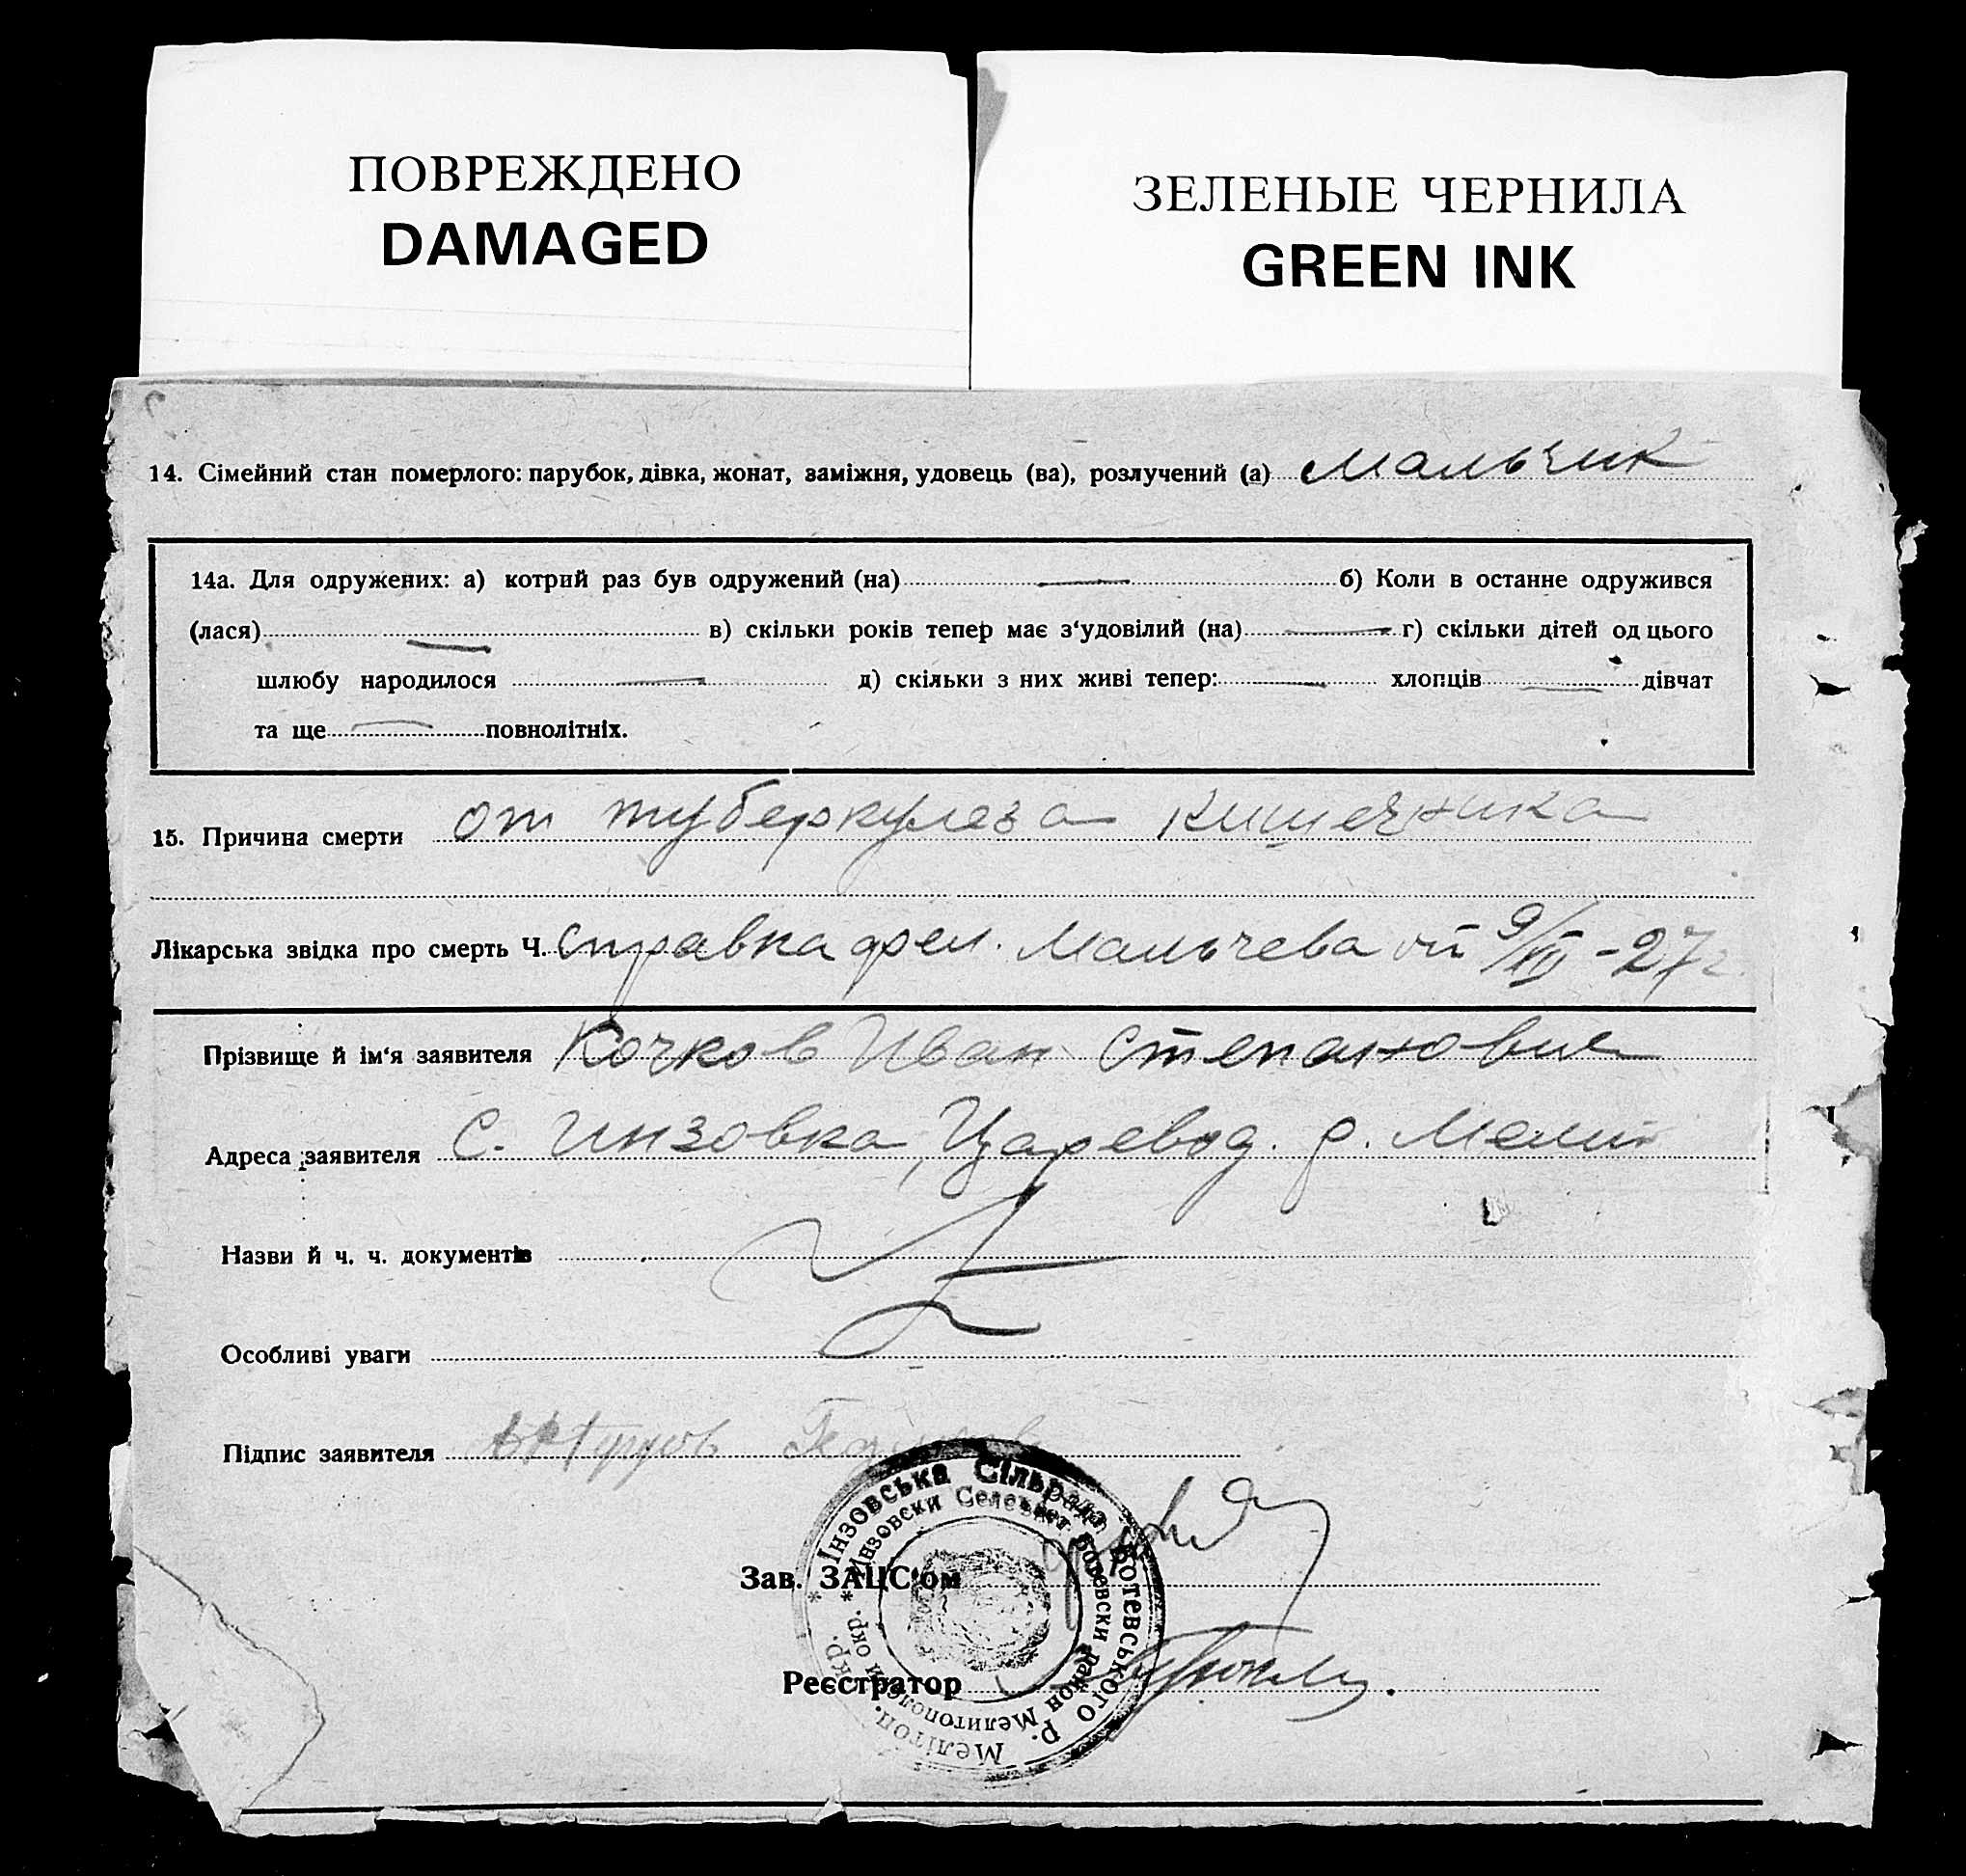 ПОВРЕЖДЕНО
DAMAGED
ЗЕЛЕНЫЕ ЧЕРНИЛА
GREEN INK
14. Сімейний стан померлого: парубок, дівка, жонат, заміжня, удовець (ва), розлучений (а) мальчик
14а. Для одружених: а) котрий раз був одружений (на) — б) Коли в останне одружився
(лася) — в) скільки років тепер має з‘удовілий (на) — г) скільки дітей од цього
шлюбу народилося — д) скільки з них живі тепер: — хлопців — дівчат
та ще — повнолітніх.
15. Причина смерти от туберкулеза кишечника
Лікарська звідка про смерть Ч. справка фел. Мальчева от 9/VIII-27г
Прізвище й ім‘я заявителя Кочков Иван Степанович
Адреса заявителя с. Инзовка, Царевод. р. Мелит
Назви й ч. ч. документів
Особливі уваги
Підпис заявителя
Зав. ЗАЦС‘ом
Реєстратор
* Інзовська Сільрада Ботевського р. Мелітоп. окр.
* Инзовски Селсъвет Ботевски район Мелитополски окр.